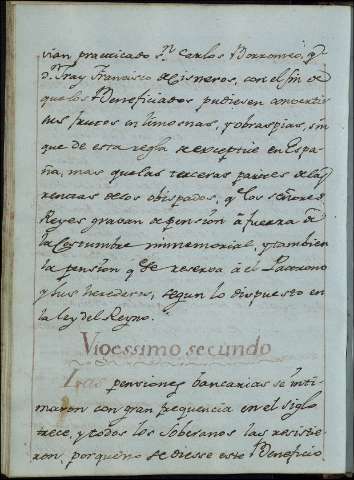 vian practicado Sn. Carlos Borromeo, y
Dn. Fray Francisco de Cisneros, con el fin de
que los Beneficiados pudiesen convertir
sus frutos en limosnas, y obras pias, sin
que de esta regla se exceptue en Espa-
ña, mas que las terceras partes de las
rentas de los obispados, qe. los señores
Reyes gravan de pension à fuerza de
la Costumbre immemorial, y tambien
la pension qe. se reserva à el Patrono
y sus herederos, segun lo dispuesto en
la ley del Reyno.
Viocessimo secundo
Las pensiones bancarias se inti-
maron con gran frequencia en el siglo
trece, y todos los Soberanos las resistie-
ron, porque no se diesse este Beneficio